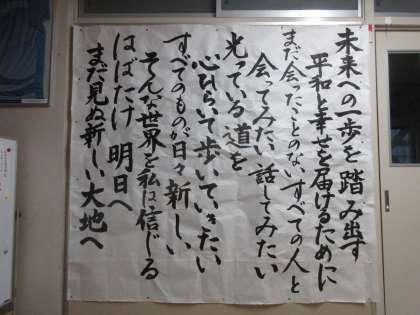 未来への一歩を踏み出す
平和と幸せを届けるために
まだ会ったことのないすべての人と
会ってみたい 話してみたい
光っている道を
心ひらいて歩いていきたい
すべてのものが日々新しい
そんな世界を私は信じる
はばたけ 明日へ
まだ見ぬ新しい大地へ